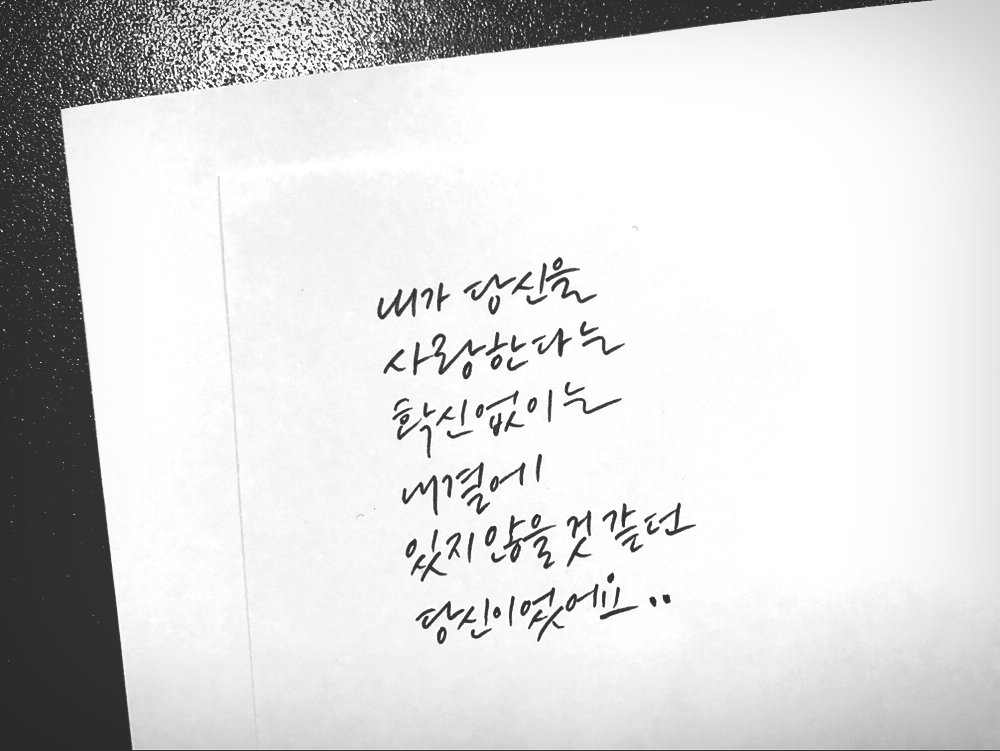 내가 당신을
사랑한다는
확신 없이는
내 곁에
있지 않을 것 같던
당신이었어요..